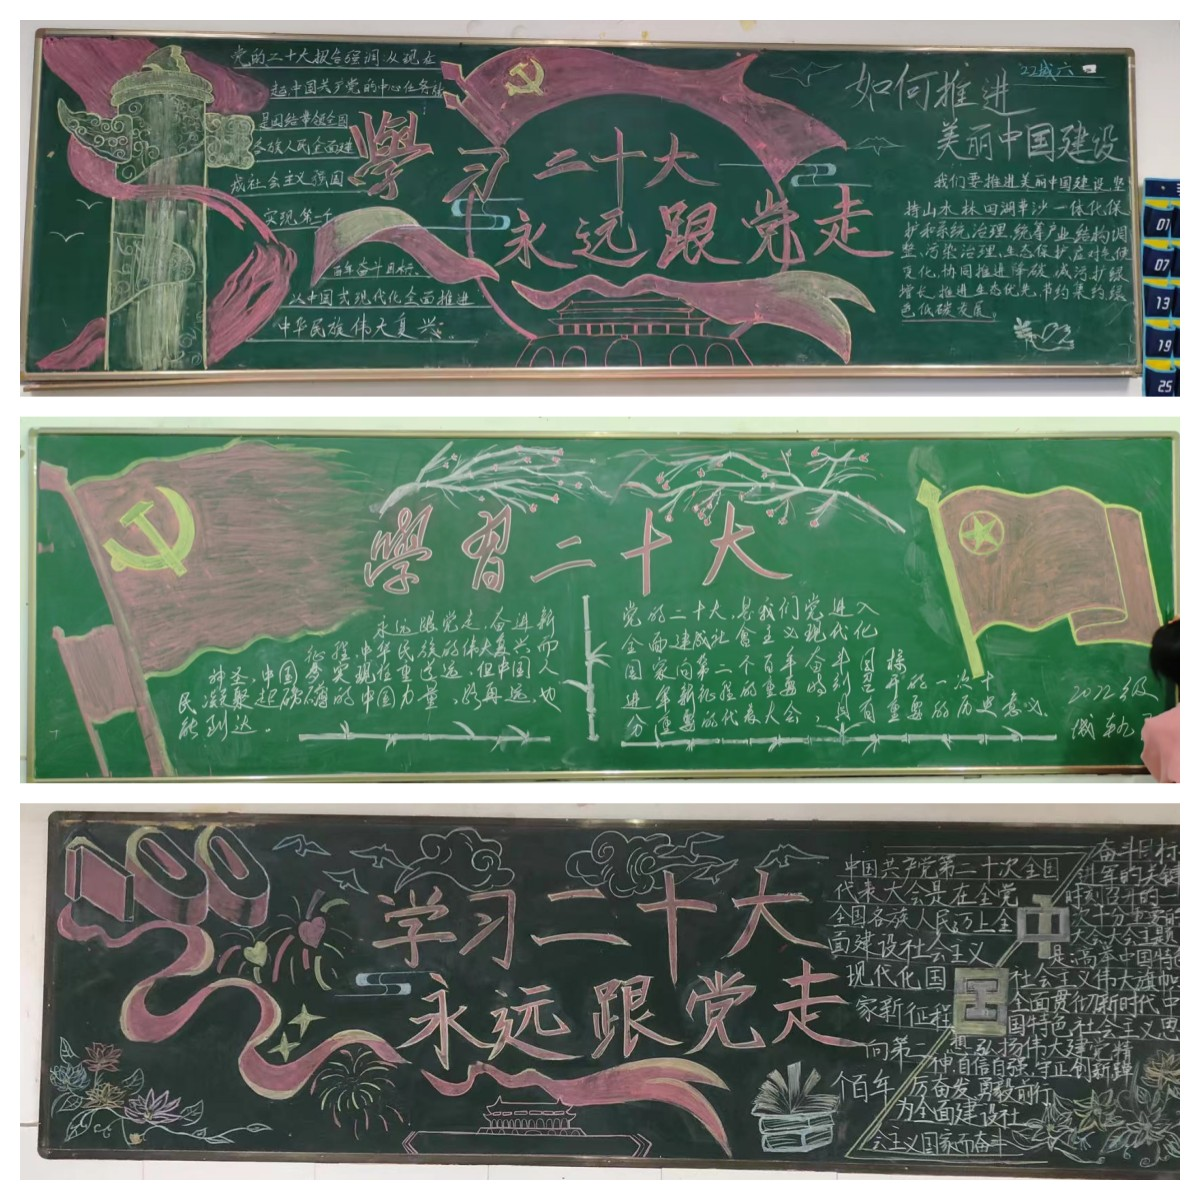 党的二十大报告强调从现在
起中国共产党的中心任务就
是团结带领全国
各族人民全面建
成社会主义强国
实现第二个
百年奋斗目标、
以中国式现代化全面推进
中华民族伟大复兴。
學习二十大
永远跟党走
22城六
如何推进
美丽中国建设
我们要推进美丽中国建设,坚
持山水林田湖草沙一体化保
护和系统治理,统筹产业结构调
整、污染治理,生态保护,应对气候
变化,协同推进降碳、减污、扩绿
增长,推进生态优先、节约集约绿
色低碳发展。
01
07
13
19
25
學習二十大
永远跟党走,奋进新
征程,中华民族的伟大复兴而
神圣,中国梦实现任重道远,但中国人
民凝聚起磅礴的中国力量,路再远,也
能到达。
党的二十大,是我们党进入
全面建成社會主义现代化
国家向第二个百年奋斗目标
进军新征程的重要时刻召开的一次十
分重要的代表大会,具有重要的历史意义.
2022级
城轨
100
学习二十大
永远跟党走
中国共产党第二十次全国
代表大会是在全党
全国各族人民迈上全
面建设社会主义
现代化国
家新征程
向第二
个百年
中
国
奋斗目标
时刻召开的一
次十分重要的
大会,大会主题
是:高举中国特色
社会主义伟大旗帜
全面贯彻新时代中
国特色社会主义思
想,弘扬伟大建党精
神,自信自强、守正创新,踔
厉奋发、勇毅前行
为全面建设社
会主义国家而奋斗